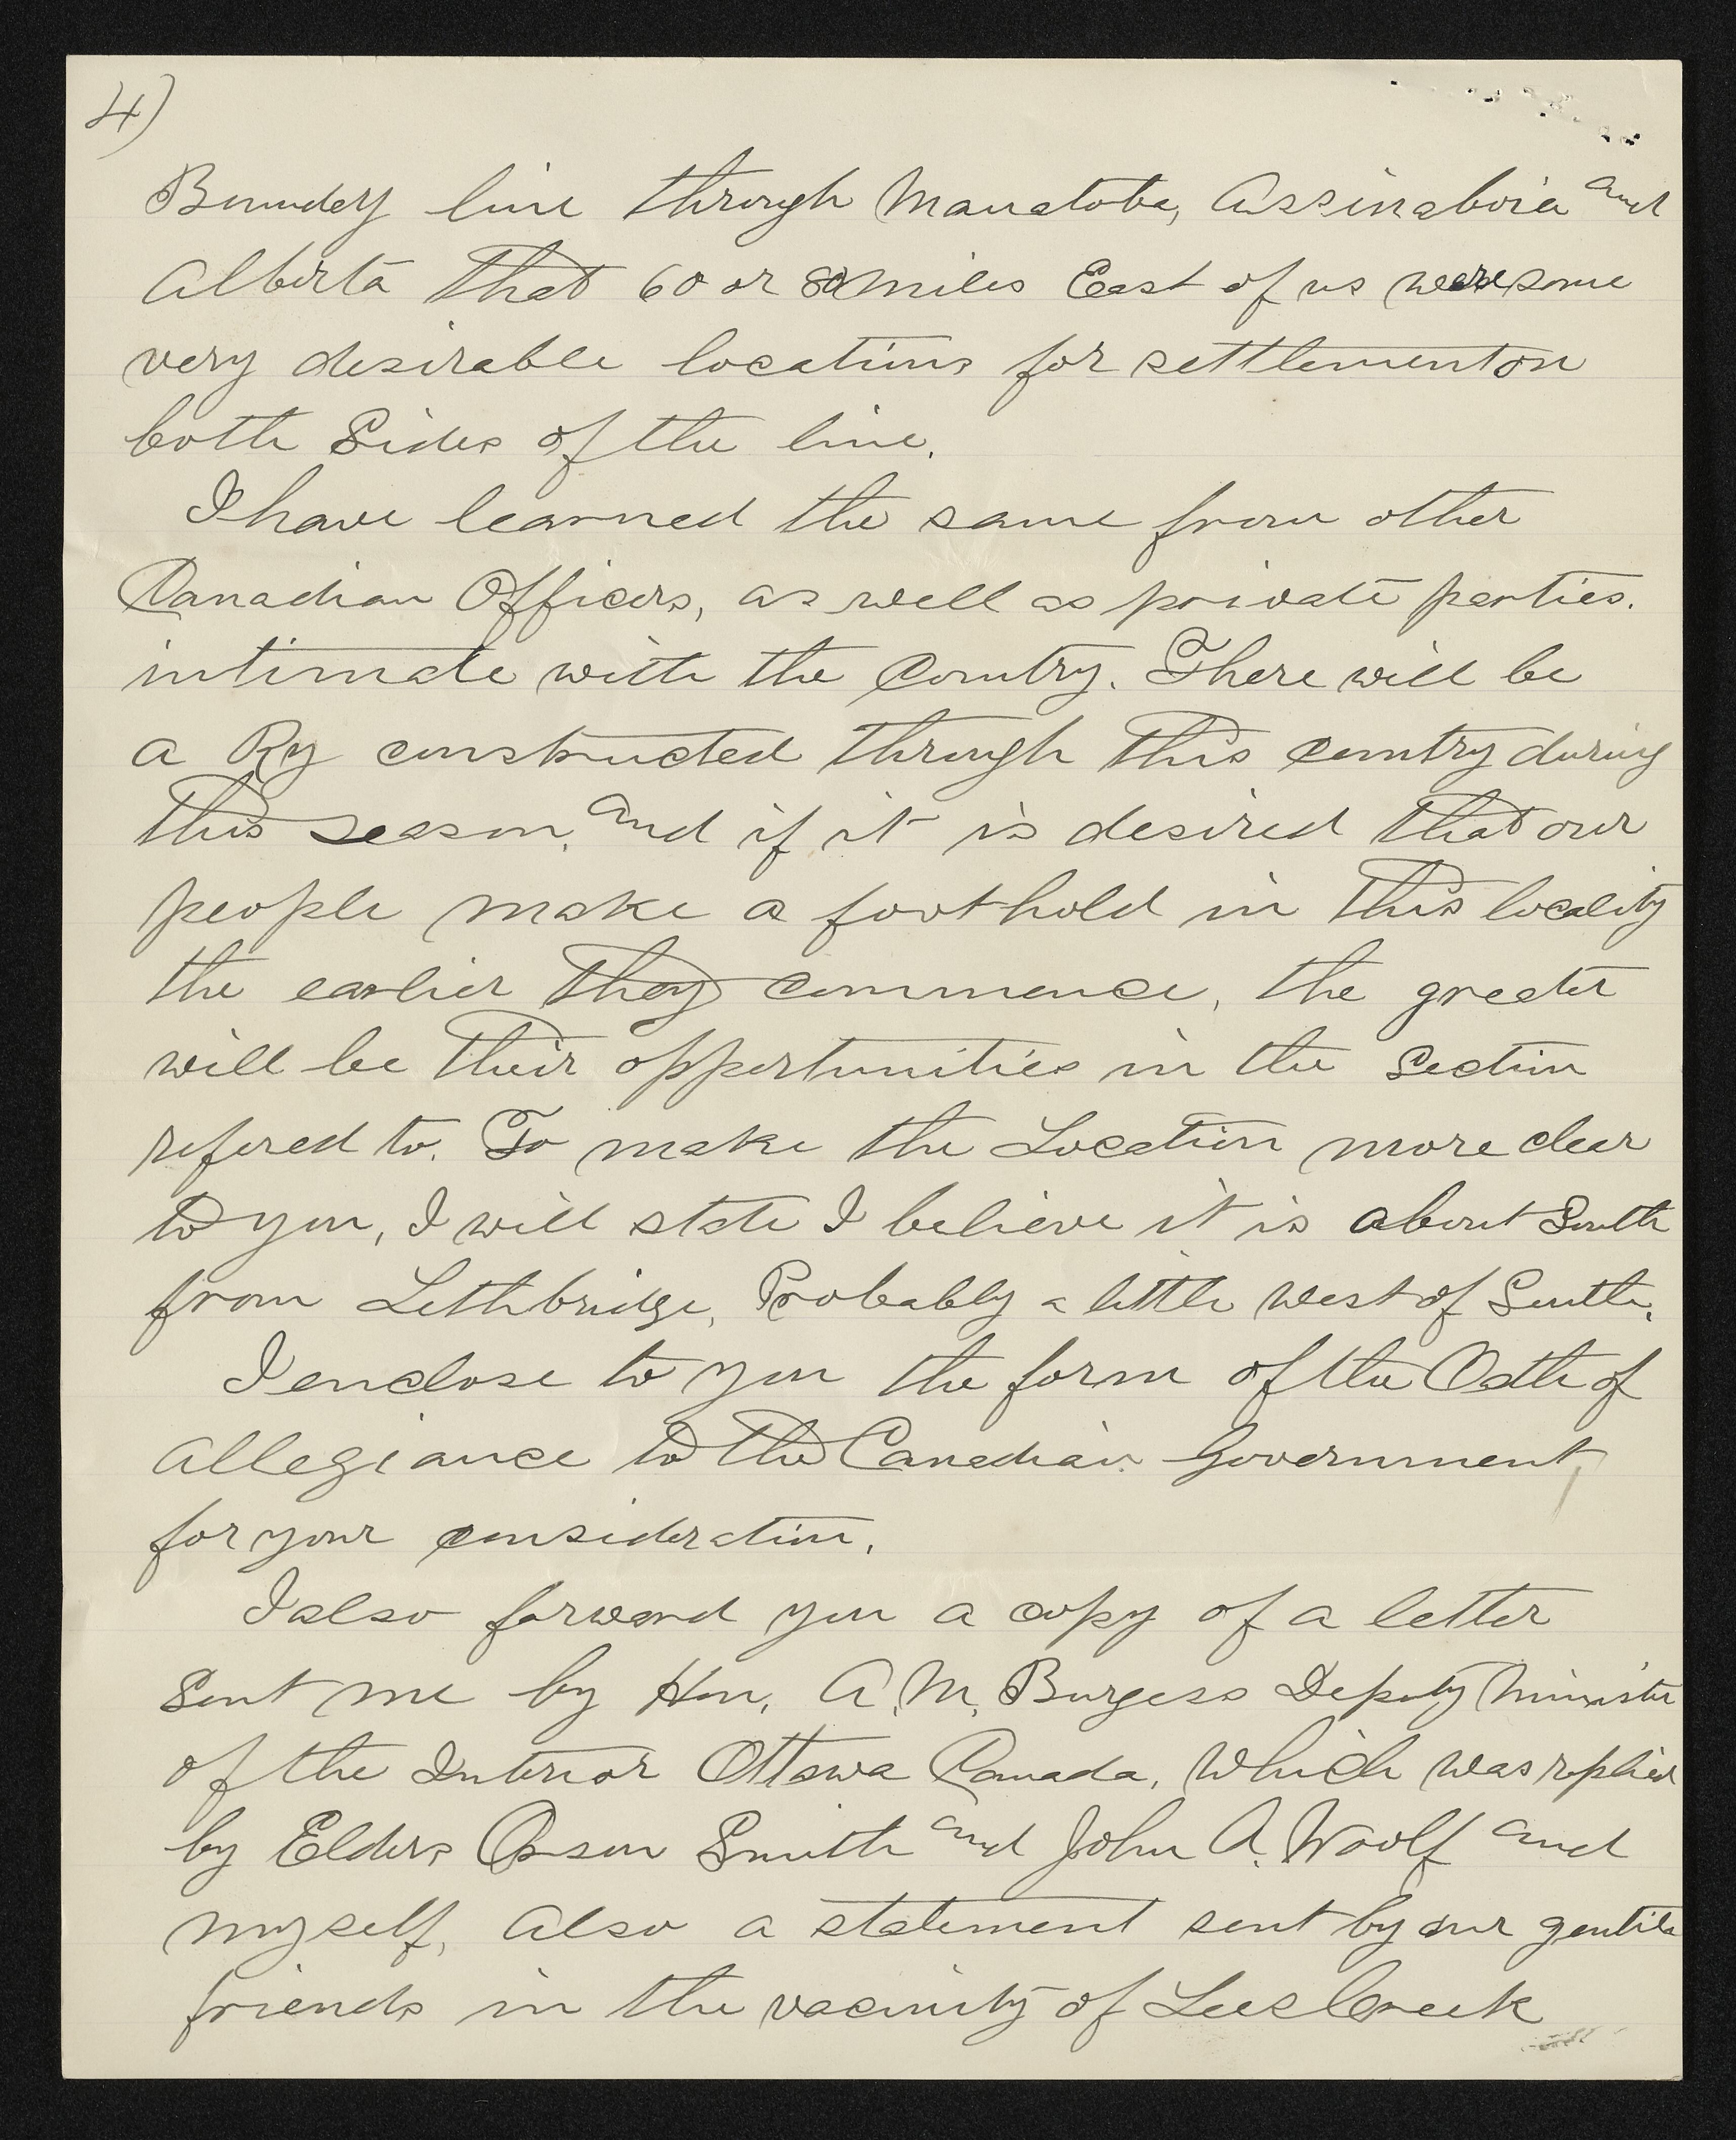 4)
Bounndey line through Manatoba, Assinaboia and
Alberta that 60 or 80 miles East of us were some
very desirable locations for settlement on
both Sides of the line.
I have learned the same from other
Canadian Officers, as well as private parties.
intimate with the Country. There will be
a Ry constructed through this country during
this season, and if it is desired that our
people make a foot-hold in this locality
the earlier they commence, the greater
will be their opportunities in the Section
refered to. To make the Location more clear
to you, I will state I believe it is about South
from Lethbridge, Probably a little west of South.
I enclose to you the form of the Oath of
Allegiance to the Canadian Government,
for your consideration.
I also forward you a copy of a letter
Sent me by Hon, A. M. Burgess Deputy Minister
of the Interior Ottawa Canada, Which was replied
by Elders Orson Smith and John A. Woolf and
myself, Also a statement sent by our gentile
friends in the vacinity of Lees Creek